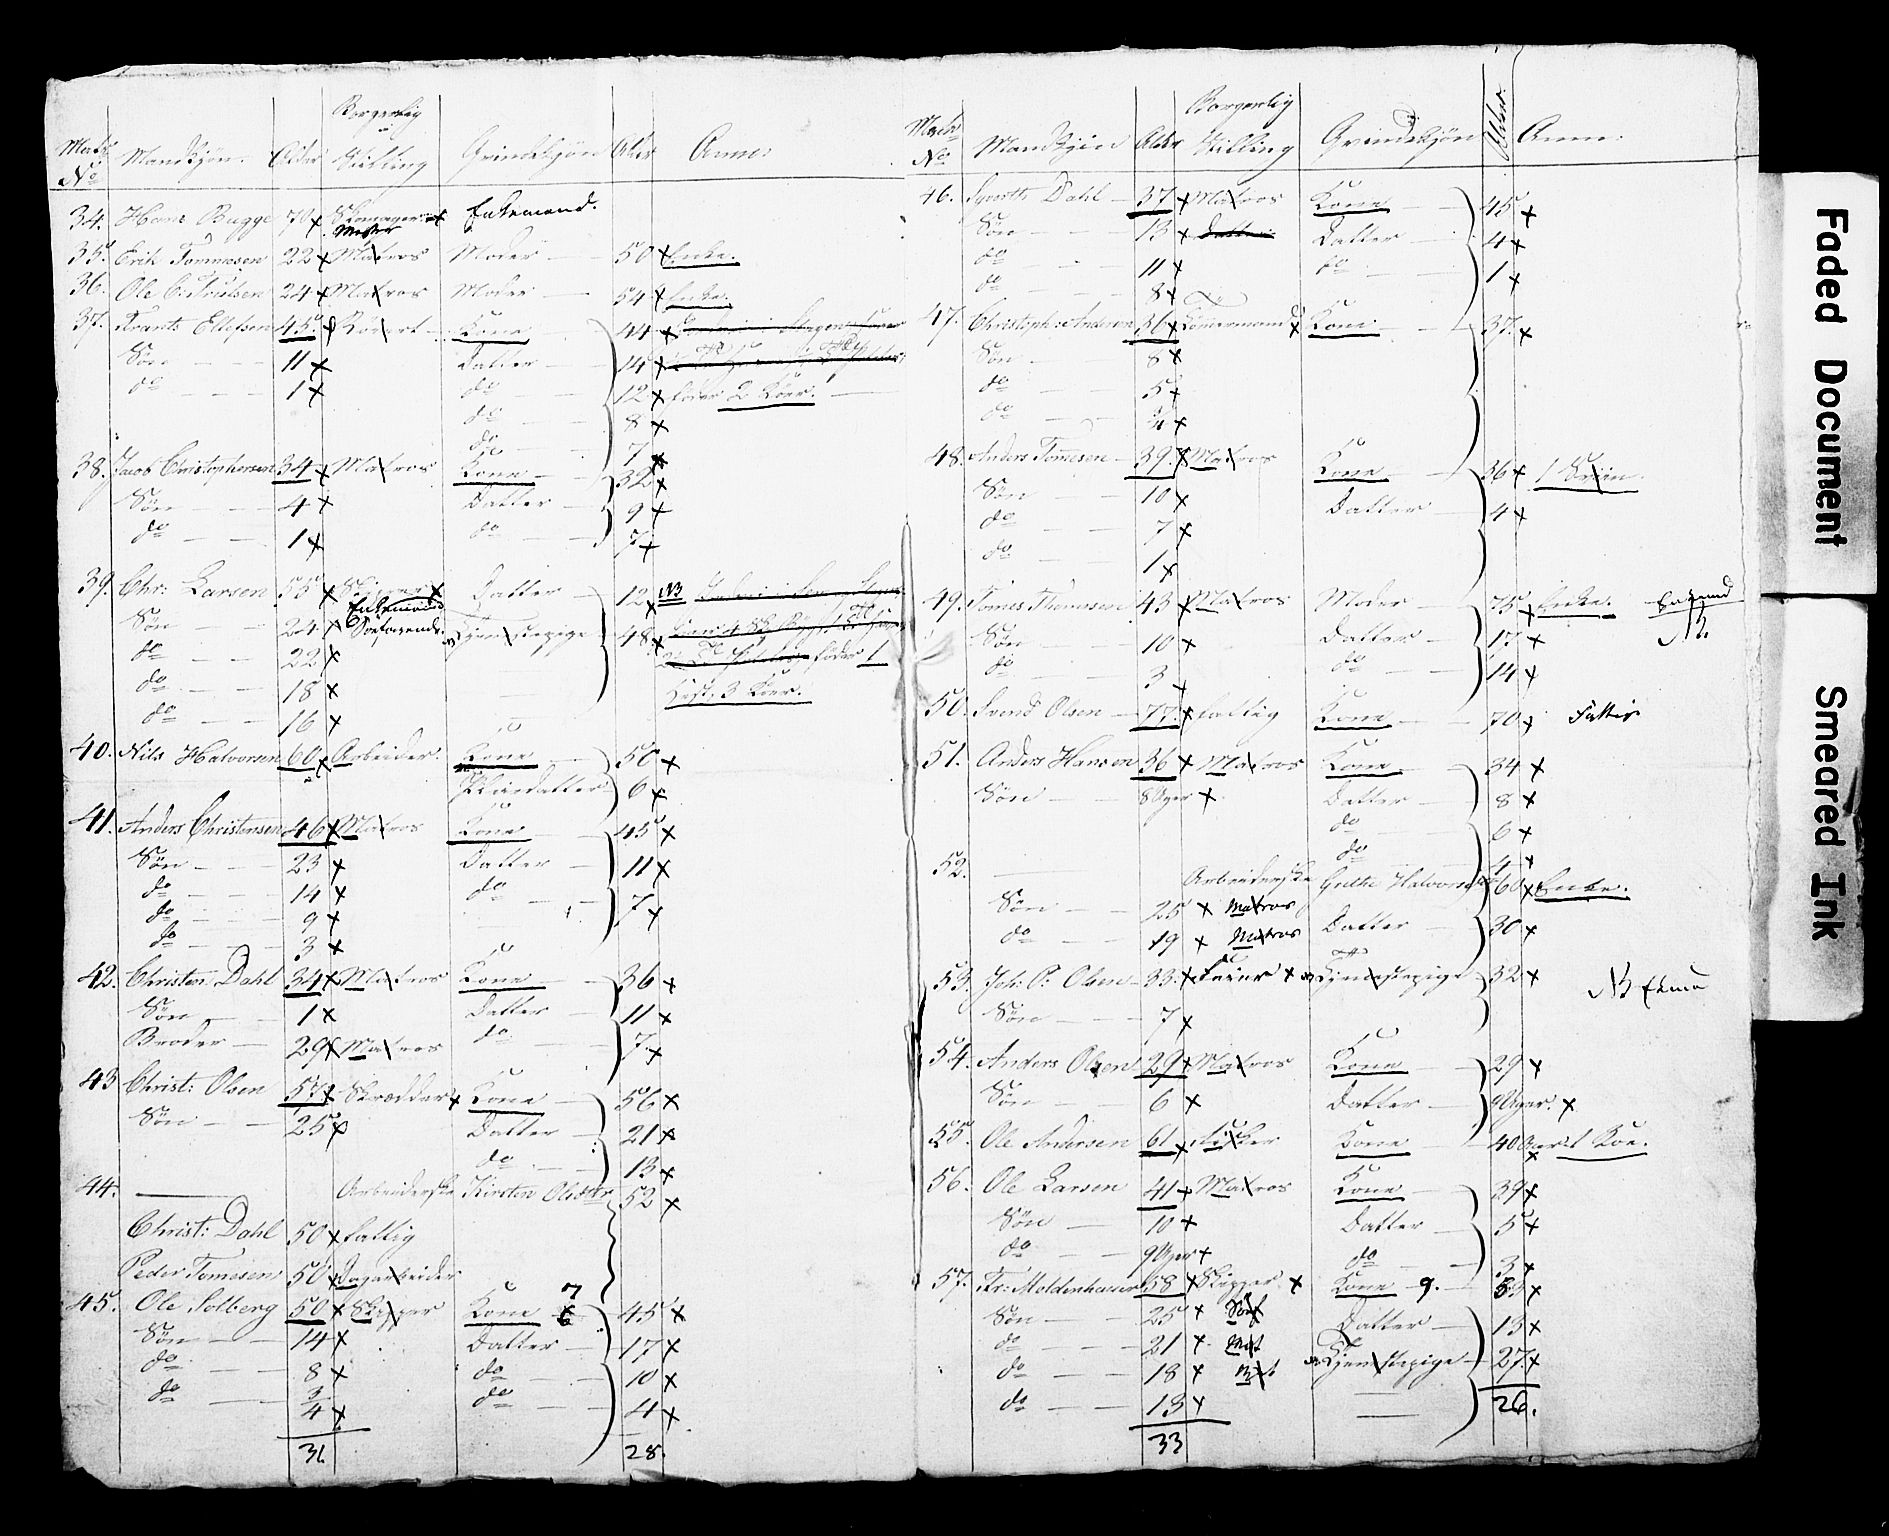 Matr: No Mandkjön. Alder Borgerlig Stilling Qvindekjön Alder Anm:
34. Hans Bugge 70 x Skomager x Enkemand.
Mester
35. Erik Tommesen 22 x Matros Moder — 50 x Enke.
36. Ole C: Trulsen 24 x Matros Moder — 54 x Enke.
37. Frants Ellefsen 45 x Kone 44 x
Søn — 11 x Datter — 14 x
do — 1 x do — 12 x föder 2 Köer.
do — 8 x
do 7 x
38. Jacob Christophersen 34 x Matros Kone — 32 x
Søn — 4 x Datter — 9 x
do — 1 x do — 7 x
39. Chr: Larsen 55 x Skipper x Datter — 12 x NB
Enkemand
Søn — 24 x Søefarende Tjenestepige 48 x
do — 22 x föder 1
do — 18 x Hest, 3 Köer.
do — 16 x
40. Nils Halvorsen 60 x Arbeider. Kone — 50 x
Pleiedatter 6 x
41. Anders Christensen 46 x Matros Kone — 45 x
Søn — 23 x Datter — 11 x
do — 14 x do — 7 x
do — 9 x
do — 3 x
42. Christen Dahl 34 x Matros Kone — 36 x
Søn — 1 x Datter — 11 x
Broder — 29 x Matros do — 7 x
43 Christ: Olsen 57 x Skrædder x Kone — 56 x
Søn — 25 x Datter — 21 x
do — 13 x
44. — Arbeiderske Kirsten Olsdttr 52 x
Christ: Dahl 50 x fattig
Peder Tomesen 50 x Dagarbeider
45. Ole Solberg 50 x Skipper Kone 7 45 x
Søn — 14 x Datter — 17 x
do — 8 x do — 10 x
do — 3/4 x do — 4 x
31 28.
Matr: No Mandkjön Alder Borgerlig Stilling Qvindekjön Alder Anm:
46. Syverth Dahl 37 x Matros Kone — 45 x
Søn — 13 x Datter Datter — 4 x
do — 11 x do — 1 x
do — 8 x
47. Christoph: Andersen 36 x Tömmermand x Kone — 37. x
Søn — 8 x
do — 5 x
do —
48. Anders Tomesen — 39. x Matros Kone — 36 x 1 Sviin.
Søn — 10 x Datter — 4 x
do — 7 x
do — 1 x
49. Tomes Thomesen 43 x Matros Moder 75 x Enke. Enkemd
Søn — 10 x Datter — 17 x NB.
do — 3 x do — 14 x
50. Svend Olsen — 77. x fattig Kone — 70 x Fattig
51. Anders Hansen 36 x Matros Kone — 34 x
Søn — 8 Uger x Datter — 8 x
do — 6 x
do — 4 x
52. — Arbeiderske Grethe Halvorsd 60 x Enke.
Søn — 25 x Matros Datter — 30 x
do — 19 x Matros
53. Joh: P: Olsen — 33. x x Tjenestepige 32 x NB
Søn — 7 x
54. Anders Olsen 29 x Matros Kone — 29 x
Søn — 6 x Datter — 9 Uger. x
55. Ole Andersen 61 x Kone — 40 x 1 Koe.
56. Ole Larsen 41 x Matros Kone — 39 x
Søn — 10 x Datter — 5 x
do — 9 Uger x do — 3 x
57. Fr: Moldenhauer 58 x Skipper x Kone — 9. — x
Søn — 25 x Søef Datter — 13 x
do — 21 x Mat Tjenestepige — 27 x
do — 18 x Mat 26.
do — 13 x
33
Faded Document
Smeared Ink